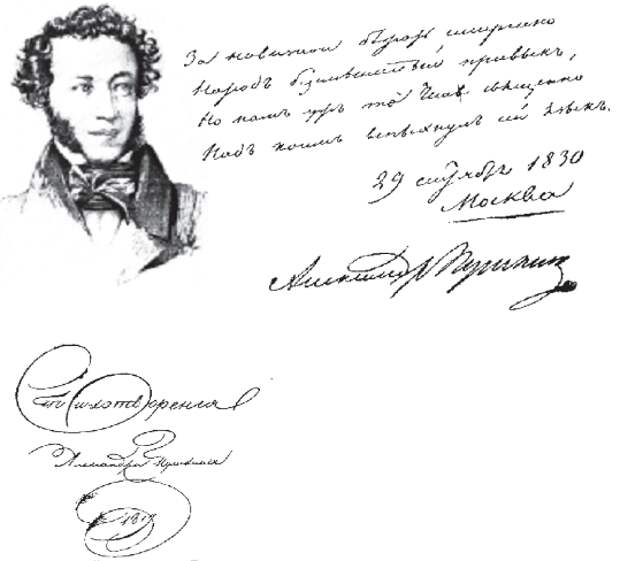 За новизной бѣжать смиренно
Народъ безмысленный привыкъ,
Но намъ ужъ то чело священно
Надъ коимъ вспыхнулъ сей языкъ.
29 сентября 1830
Москва
Александр Пушкин
Стихотворения
Александра Пушкина
1817